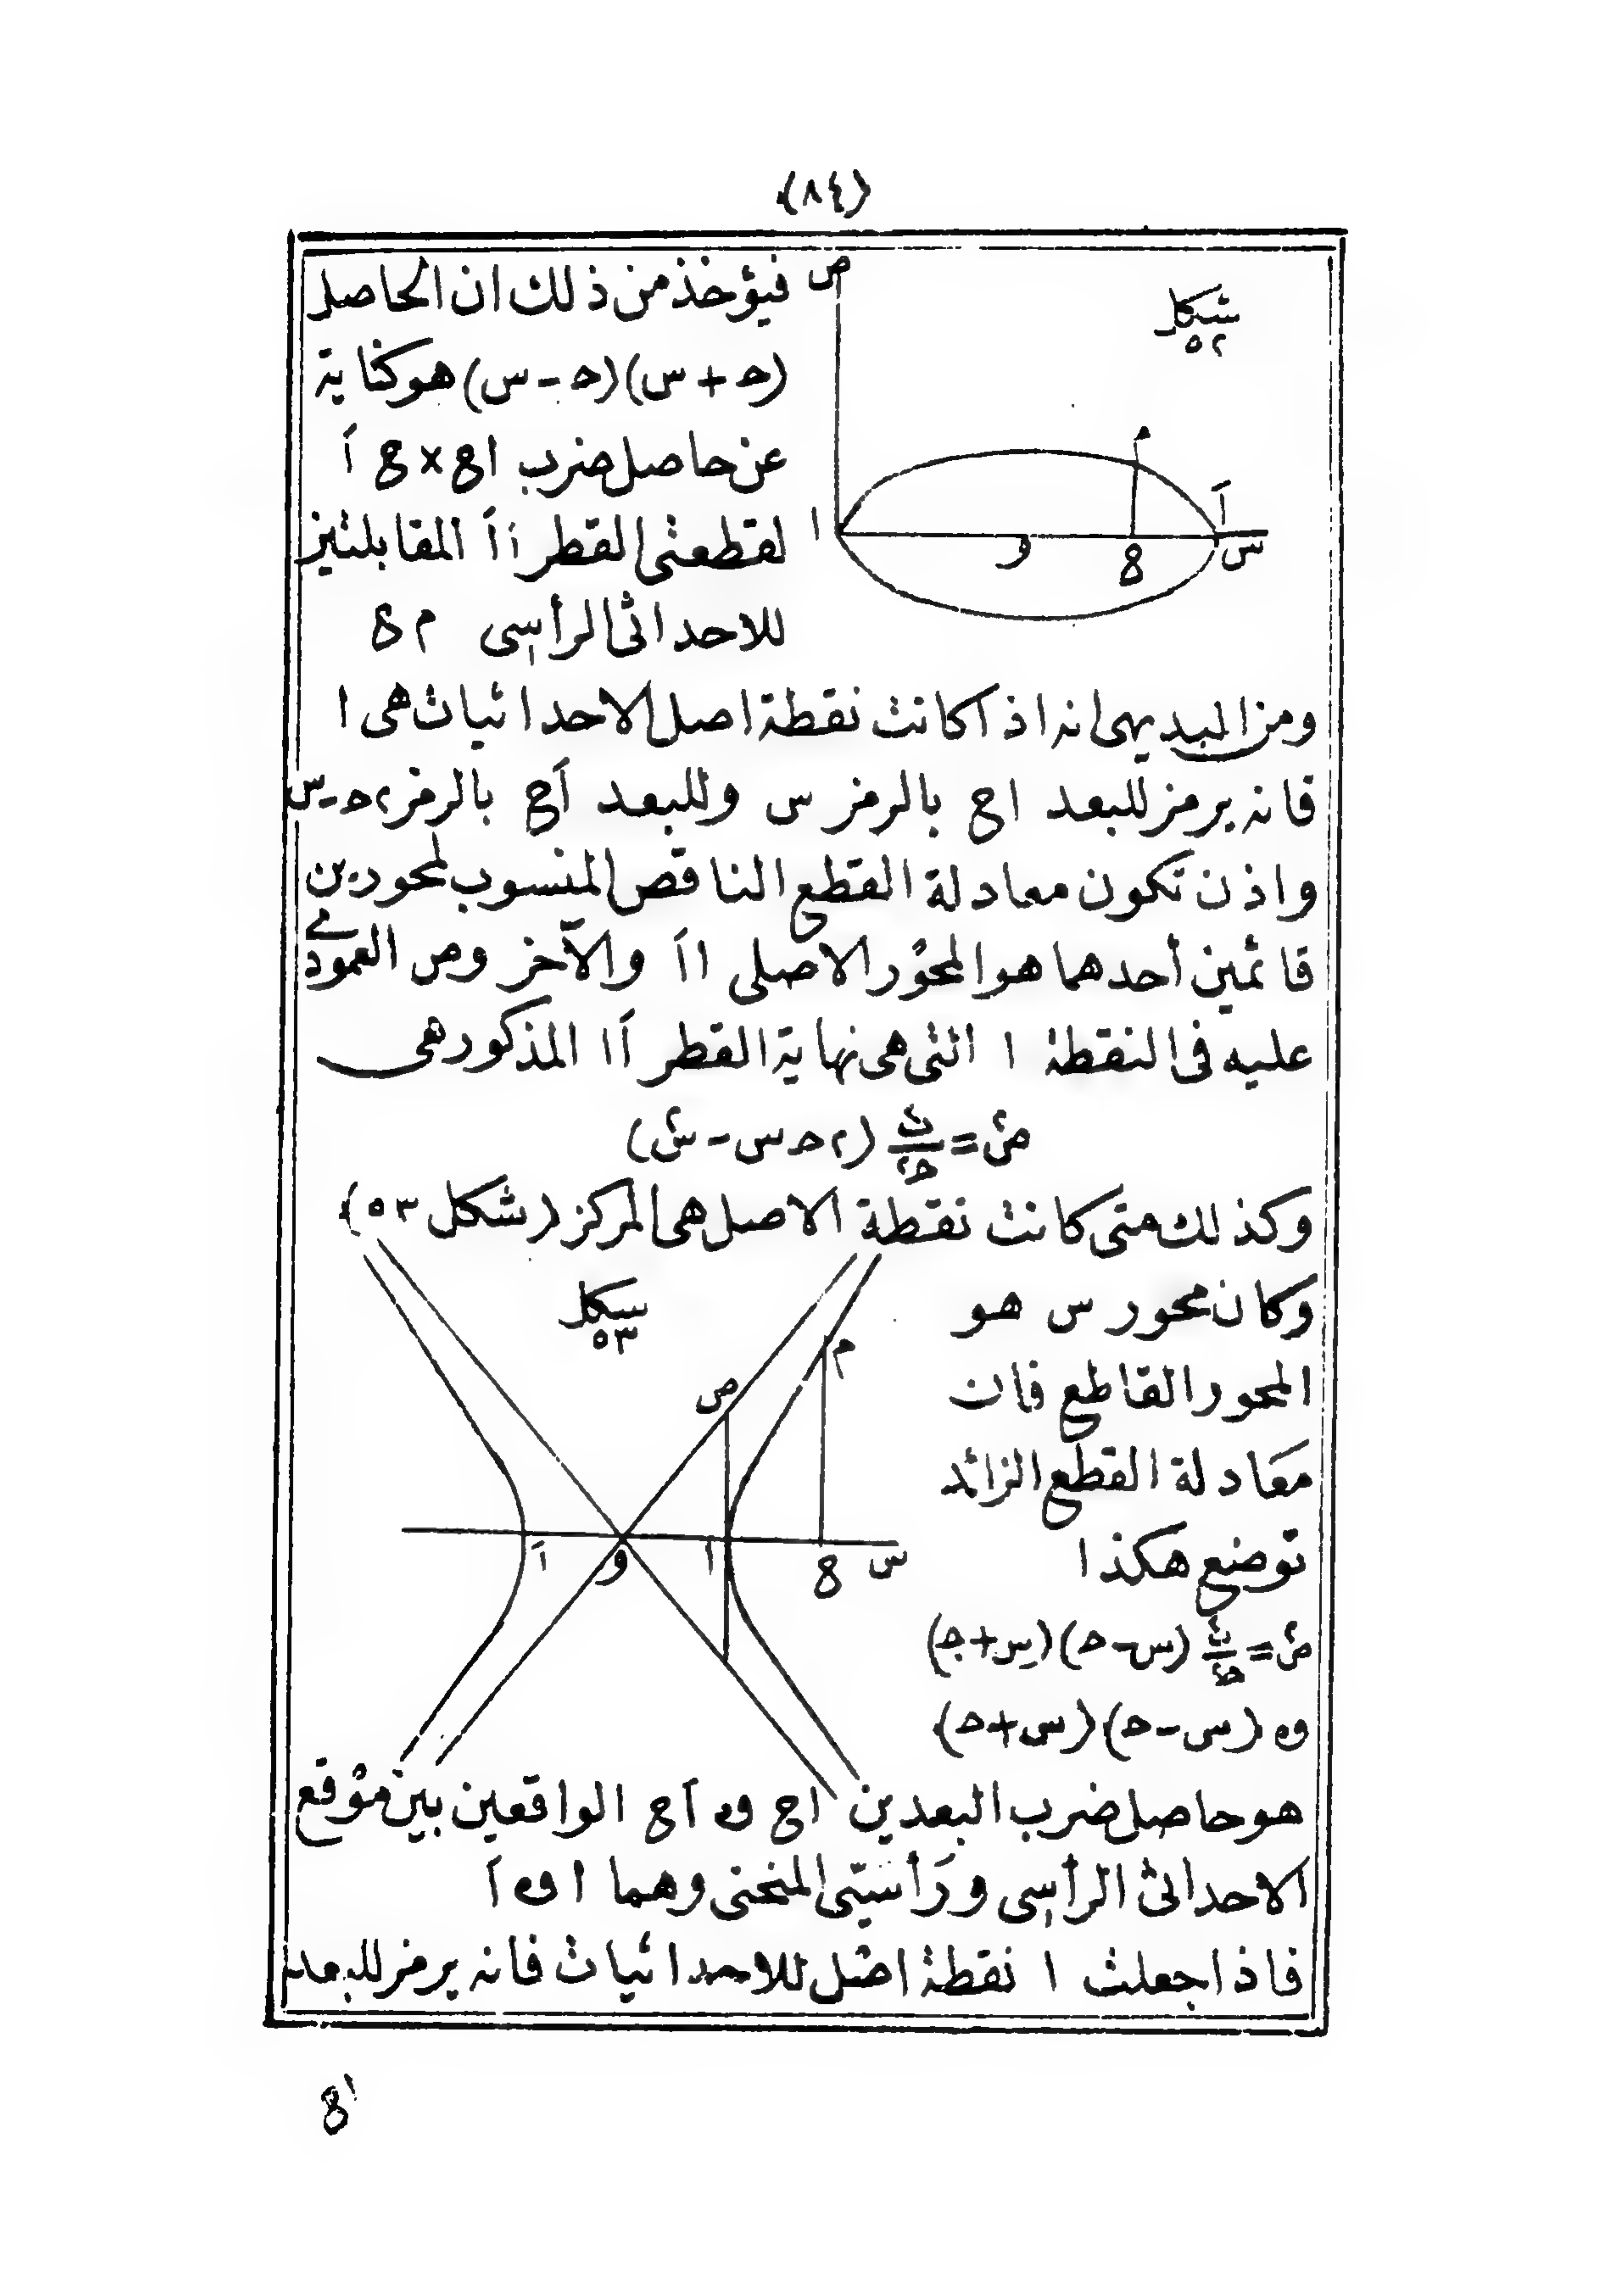 (٨٤)
شكل
٥٢
ص
م
آ
ا
و
ع
س
فيؤخذ من ذلك ان الحاصل
(حـ + س)(حـ - س) هو كناية
عن حاصل ضرب اع × ع آ
لقطعتى القطر اآ المقابلتين
للاحداثى الرأسى م ع
ومن البديهى انه اذا كانت نقطة اصل الاحداثيات هى ا
فانه يرمز للبعد اع بالرمز س وللبعد آع بالرمز ٢حـ-س
واذن تكون معادلة القطع الناقص المنسوب لمحورين
قائمين أحدهما هو المحور الاصلى اآ والآخر وص العمودى
عليه فى النقطة ا التى هى نهاية القطر آا المذكور هى
ص٢ = ب٢/حـ٢ (٢حـ س - س٢)
وكذلك متى كانت نقطة الاصل هى المركز (شكل ٥٣)
وكان محور س هو
المحور القاطع فان
معادلة القطع الزائد
توضع هكذا
ص٢ = ب٢/حـ٢ (س-حـ)(س+حـ)
و٥ (س-حـ)(س+حـ)
شكل
٥٣
م
ص
آ
و
ا
ع
س
هو حاصل ضرب البعدين اع و٥ آع الواقعين بين موقع
الاحداثى الرأسى ورأسيّى المنحنى وهما ا و٥ آ
فاذا جعلت ا نقطة اصل للاحداثيات فانه يرمز للبعد
اع